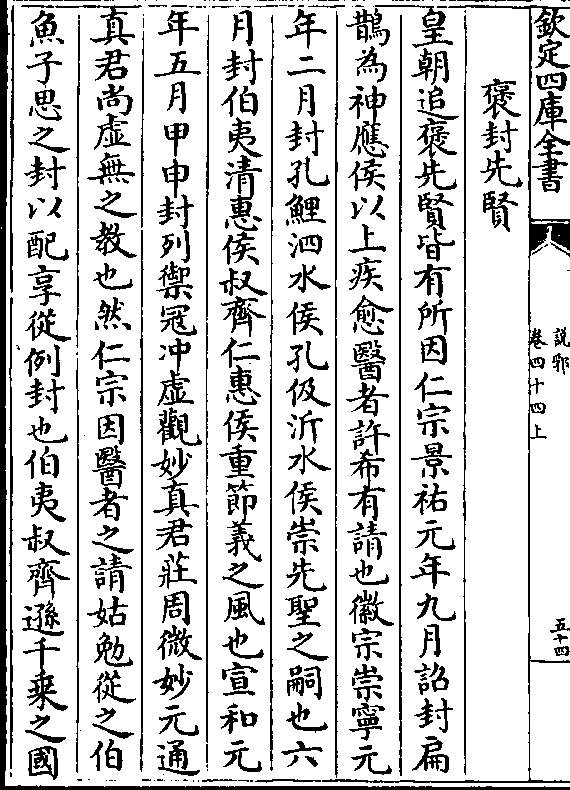 欽定四庫全書
說郛
卷四十四上
五十四
褒封先賢
皇朝追褒先賢皆有所因仁宗景祐元年九月詔封扁
鵲為神應侯以上疾愈醫者許希有請也徽宗崇寧元
年二月封孔鯉泗水侯孔伋沂水侯崇先聖之嗣也六
月封伯夷清惠侯叔齊仁惠侯重節義之風也宣和元
年五月甲申封列禦冦冲虛觀妙真君莊周微妙元通
真君尚虛無之教也然仁宗因醫者之請姑勉從之伯
魚子思之封以配享從例封也伯夷叔齊遜千乗之國